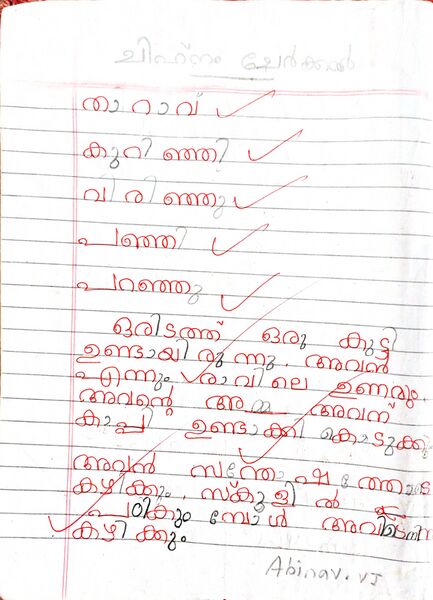 ചിഹ്നം ചേർക്കൽ
താറാവ്
കുറിഞ്ഞി
വിരിഞ്ഞു
പഞ്ഞി
പറഞ്ഞു
ഒരിടത്ത് ഒരു കുട്ടി
ഉണ്ടായിരുന്നു. അവൻ
എന്നും രാവിലെ ഉണരും.
അവന്റെ അമ്മ അവന്
കാപ്പി ഉണ്ടാക്കി കൊടുക്കും
അവൻ സന്തോഷത്തോടെ
കഴിക്കും. സ്കൂളിൽ
പഠിക്കുമ്പോൾ അവിടെനിന്ന്
കഴിക്കും
Abinav. VJ